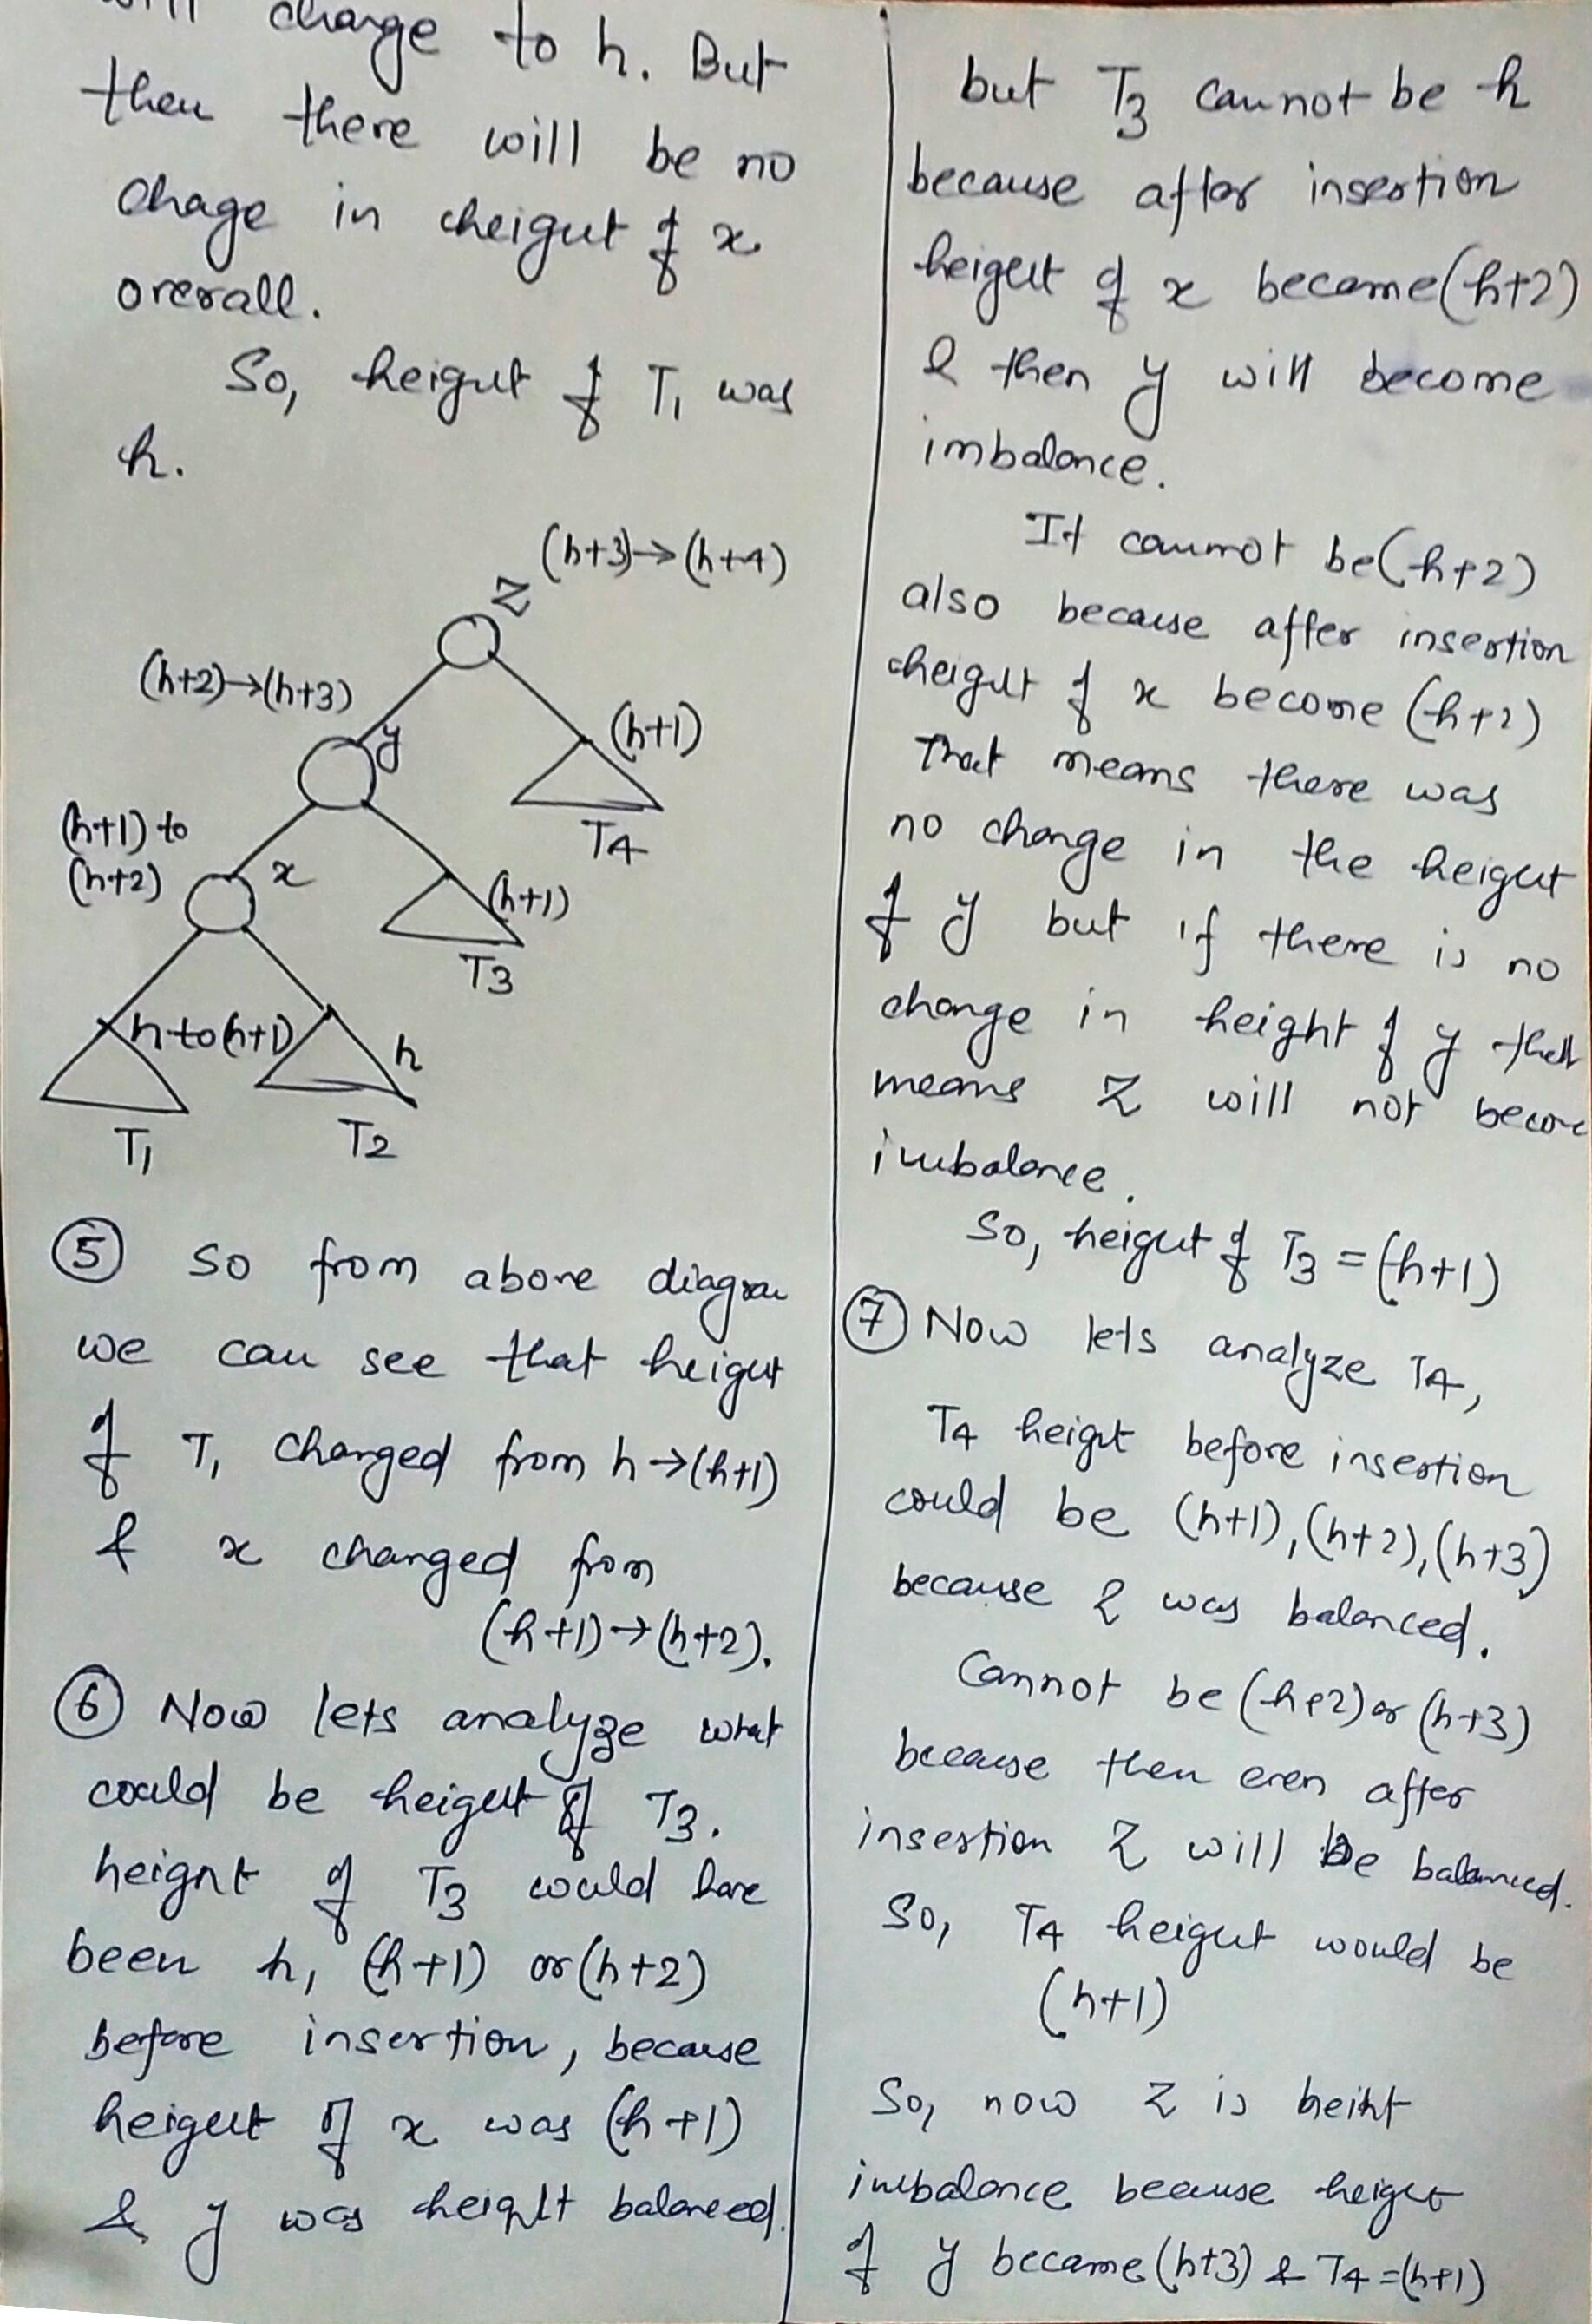 will change to h. But
then there will be no
chage in height of x
overall.
So, height of T1 was
h.
(h+3)→(h+4)
Z
(h+2)→(h+3)
y
(h+1)
T4
(h+1) to
(h+2)
x
(h+1)
T3
h to (h+1)
h
T1
T2
⑤ So from above diagram
we can see that height
of T1 changed from h→(h+1)
& x changed from
(h+1)→(h+2).
⑥ Now lets analyze what
could be height of T3.
height of T3 would have
been h, (h+1) or (h+2)
before insertion, because
height of x was (h+1)
& y was height balanced.
but T3 cannot be h
because after insertion
height of x became (h+2)
& then y will become
imbalance.
It cannot be (h+2)
also because after insertion
height of x become (h+2)
That means there was
no change in the height
of y but if there is no
change in height of y that
means Z will not become
imbalance.
So, height of T3 = (h+1)
⑦ Now lets analyze T4,
T4 height before insertion
could be (h+1), (h+2), (h+3)
because Z was balanced.
Cannot be (h+2) or (h+3)
because then even after
insertion Z will be balanced.
So, T4 height would be
(h+1)
So, now Z is heiht
imbalance because height
of y became (h+3) & T4 = (h+1)